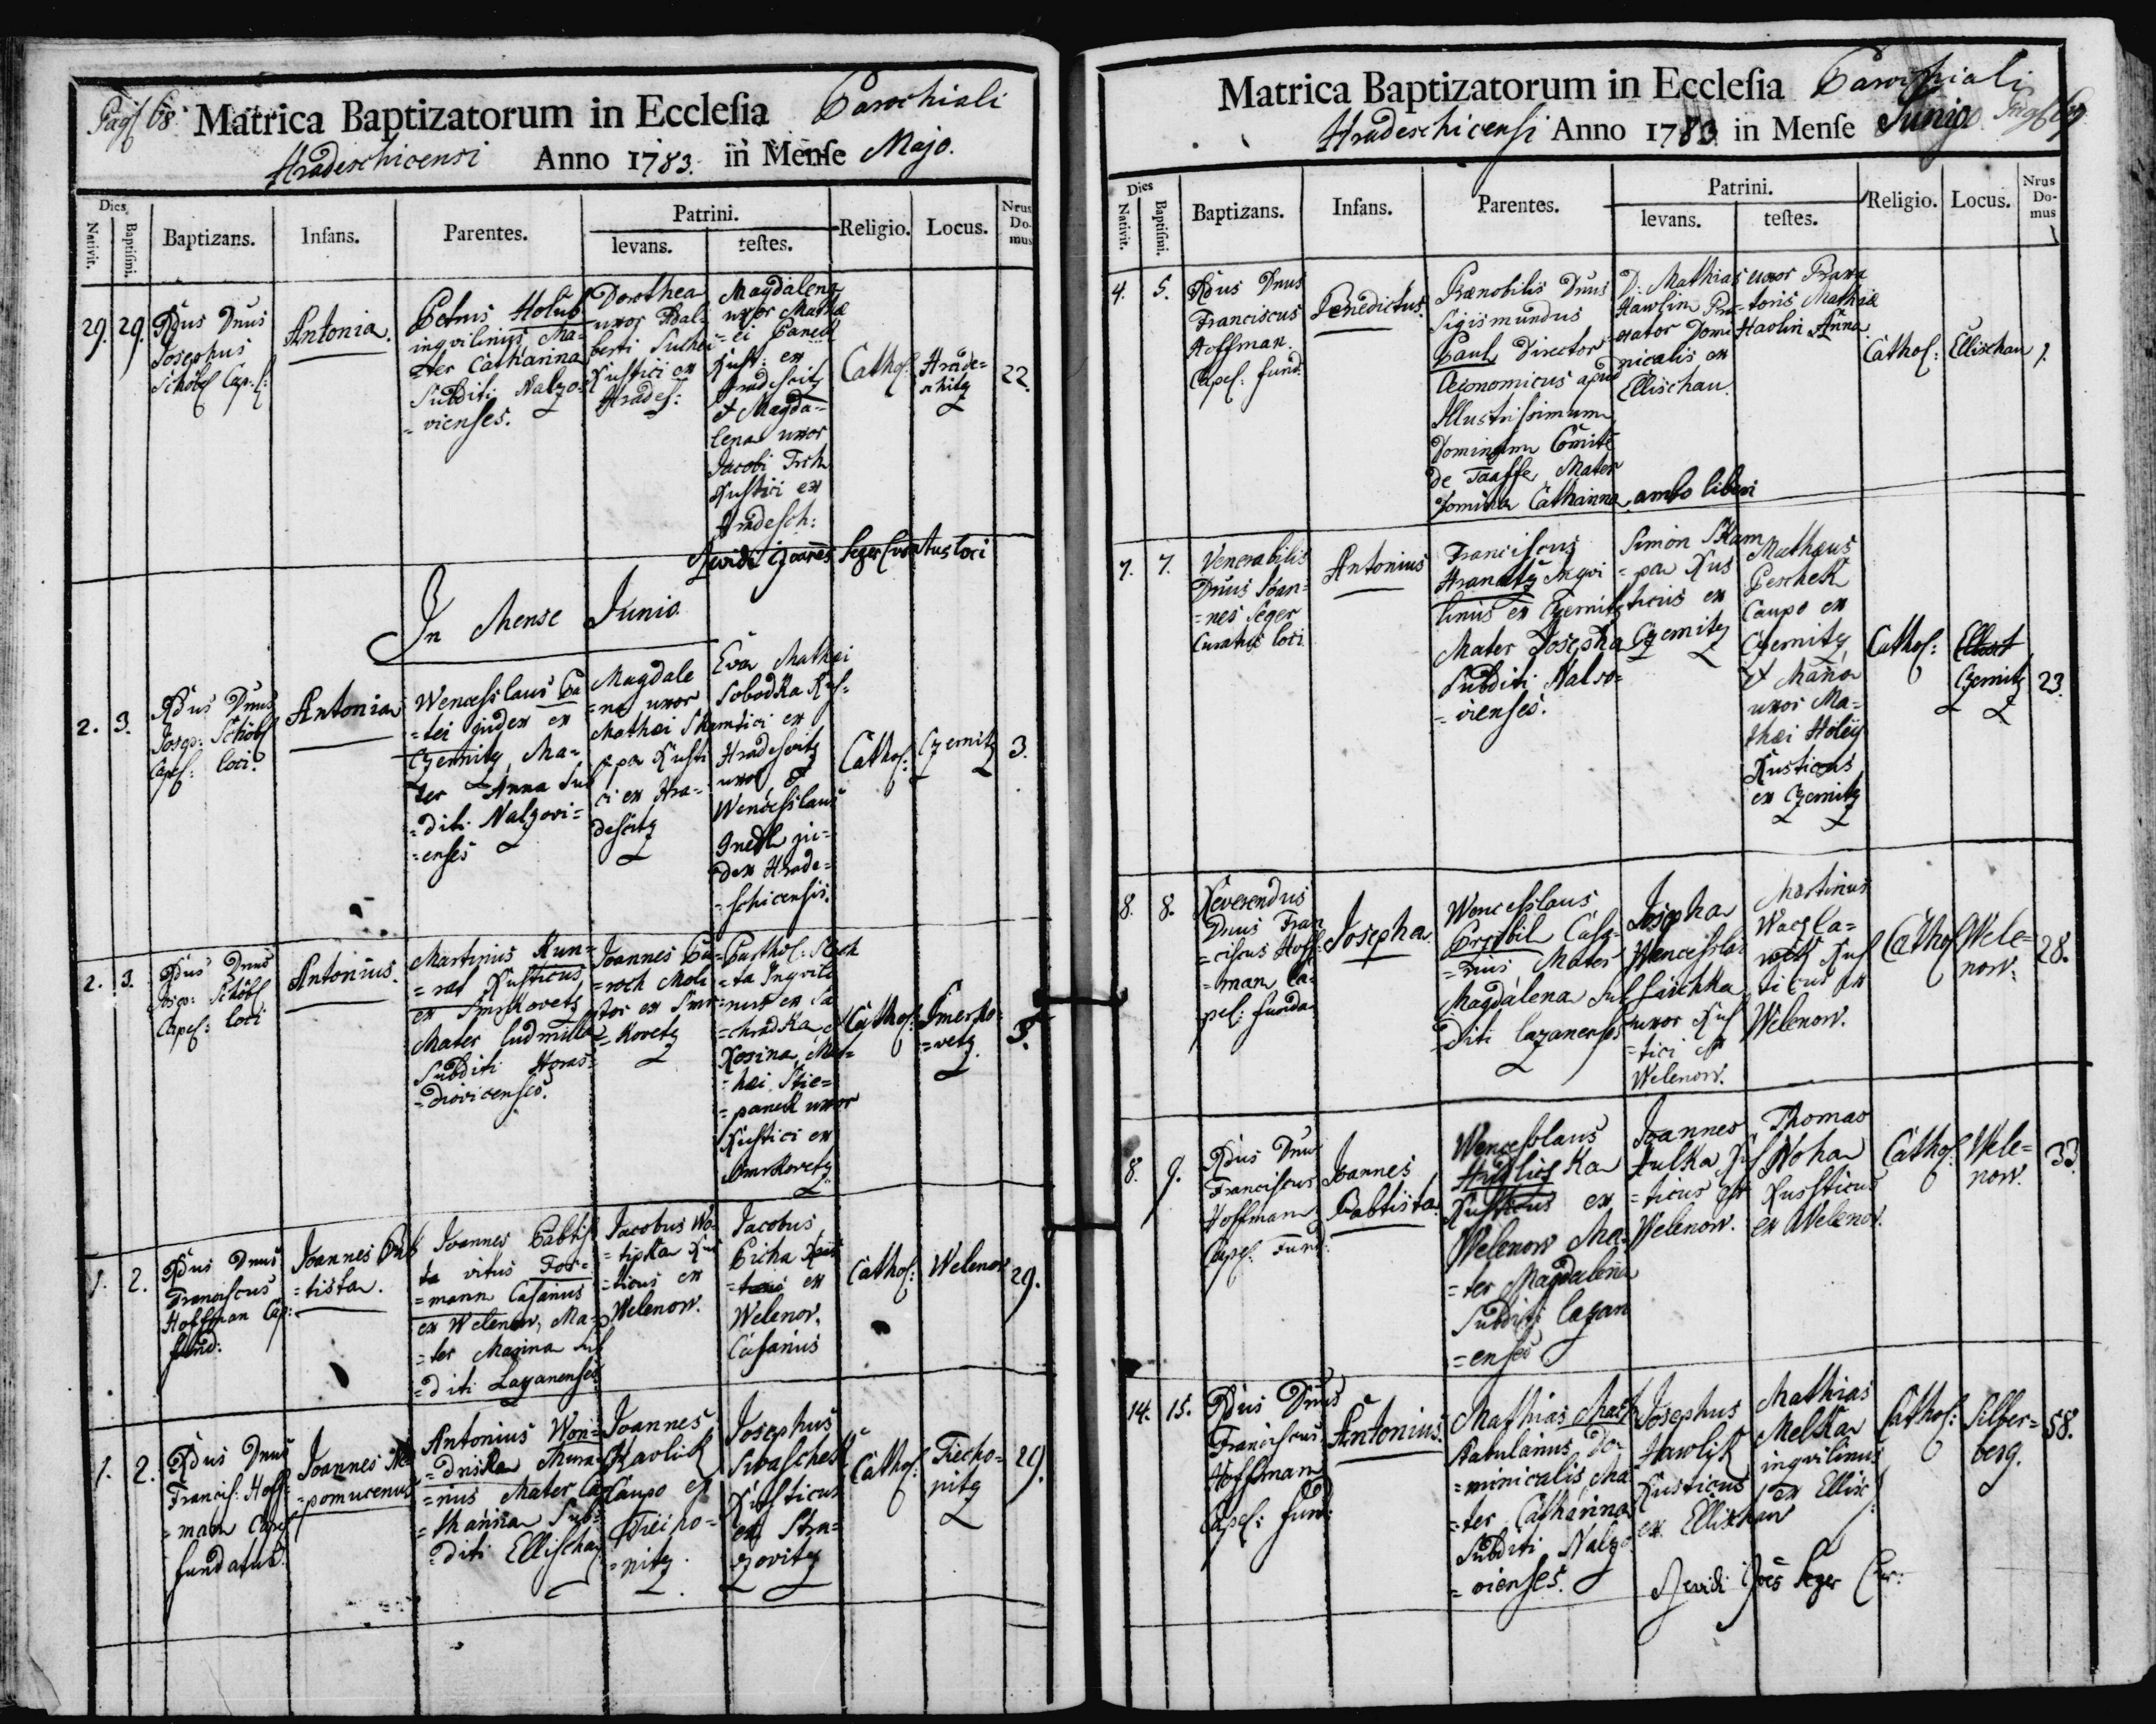 Pag 68 Matrica Baptizatorum in Ecclesia Parochiali
Hradeschicensi Anno 1783. in Mense Majo.
Dies
Nativit.
Baptismi.
Baptizans.
Infans.
Parentes.
Patrini.
levans.
testes.
Religio.
Locus.
Nrus Domus
29.
29.
Rdus Dnus
Josephus
Schöbl Cap: l:
Antonia.
Petrus Holub
inqvilinus, Ma=
=ter Catharina
Subditi Nalzo=
=vienses.
Dorothea
uxor Adal=
berti
Rustici ex
Hrades:
Magdalena
uxor Mathæ
=ei Panek
Rust: ex
Hradeschitz
et Magda=
lena uxor
Jacobi
Rustici ex
Hradesch:
Cathol:
Hrade=
=schitz
22.
Revidi Joañes Seger Curatus loci
In Mense Junio
2.
3.
Rdus Dnus
Josep: Schöbl
Capel: loci.
Antonia
Wenceslaus Pa
=tei judex ex
Czernitz, Ma=
=ter Anna Sub
=diti Nalzovi=
=enses
Magdale
=na uxor
Mathæi Skam
=pa Rusti
ci ex Hra=
deschitz
Eva Mathæi
Sobodka Rus=
tici ex
Hradeschitz
uxor, et
Wenceslaus
Jnedl ju=
dex Hrade=
=schicensis.
Cathol:
Czernitz
3.
2.
3.
Rdus Dnus
Josep: Schöbl
Capel: loci
Antonius.
Martinus Kun=
=rad Rusticus
ex Smrkovetz
Mater Ludmilla
Subditi Horas=
=diovicenses.
Joannes Bu=
=roch Moli
tor ex Smr
=kovetz
Barthol:
=ta Inqvili
nus ex
=chradka et
Rosina, Mat=
=hæi Stie=
=panek uxor
Rustici ex
Smrkovetz
Cathol:
Smerko=
=vetz
3.
1.
2.
Rdus Dnus
Franciscus
Hoffman Cap:
fund:
Joannes Bab
=tista.
Joannes Babtis
ta vitus For=
=mann Casarius
ex Welenow, Ma=
=ter Marina Sub
=diti Lazanenses
Jacobus Wo=
=tipka Rus
=ticus ex
Welenow.
Jacobus
Picha
ex
Welenov.
Casarius
Cathol:
Welenov
29.
1.
2.
Rdus Dnus
Francis: Hoff=
=man Capel
fundatus.
Joannes Ne
=pomucenus
Antonius Won=
=driska Mura=
=rius Mater Ca
=tharina Sub=
=diti Ellischau
Joannes
Havlik
Caupo ex
Tiecho=
=nitz.
Josephus
Swaschek
Rusticus
ex Stra=
zovitz
Cathol:
Tiecho=
nitz
29.
Matrica Baptizatorum in Ecclesia Parochiali
Hradeschicensi Anno 1783 in Mense Junio. Pag 69
Dies
Nativit.
Baptismi.
Baptizans.
Infans.
Parentes.
Patrini.
levans.
testes.
Religio.
Locus.
Nrus Domus
4.
5.
Rdus Dnus
Franciscus
Hoffman.
Capel: fund:
Benedictus.
Prænobilis Dnus
Sigismundus
Paul, Director
Oeconomicus apud
Illustrissimum
Dominum Comite
de Taaffe, Mater
Domina Catharina, ambo liberi
D: Mathias
Hawlin Pur
=nator Domi
nicalis ex
Ellischau.
uxor
=toris Mathiæ
Havlin Anna
Cathol:
Ellischau
1.
7.
7.
Venerabilis
Dnus Joan=
=nes Seger
Curatus loci
Antonius
Franciscus
Hranatz Inqvi
linus ex Czernitz
Mater Josepha
Subditi Nalzo=
=vienses.
Simon Skam
=pa Rus
ticus ex
Czernitz
Mathæus
Peschek
Caupo ex
Czernitz
et Maria
uxor Ma=
thæi Holey
Rusticus
ex Czernitz
Cathol:
Czernitz
23.
8.
8.
Reverendus
Dnus Fran
=ciscus Hoff=
=man Ca=
pel: funda
Josepha
Wenceslaus
Brzibil Casa=
=rius, Mater
Magdalena Sub
diti Lazanenses
Josepha
Wenceslai
Laischka
uxor Rus
=tici ex
Welenow.
Martinus
Wacla=
wik Rus
ticus ex
Welenow.
Cathol
Wele=
now.
28.
8.
9.
Rdus Dnus
Franciscus
Hoffmann
Capel: Fund:
Joannes
Babtista.
Wenceslaus
Hrdliczka
Rusticus ex
Welenow Ma
=ter Magdalena
Subditi Lazan
=enses
Joannes
Hulka Rus
=ticus ex
Welenow.
Thomas
Noha
Rusticus
ex Welenov.
Cathol:
Wele=
now.
33.
14.
15.
Rdus Dnus
Franciscus
Hoffman
Capel: fund:
Antonius.
Mathias Mach
Stabularius Do=
=minicalis, Ma=
=ter Catharina
Subditi Nalzo
=vienses.
Josephus
Hawlik
Rusticus
ex Ellischau
Mathias
Melka
inqvilinus
ex Ellisc
Cathol:
Silber=
berg.
58.
Revidi Joës Seger Cur: